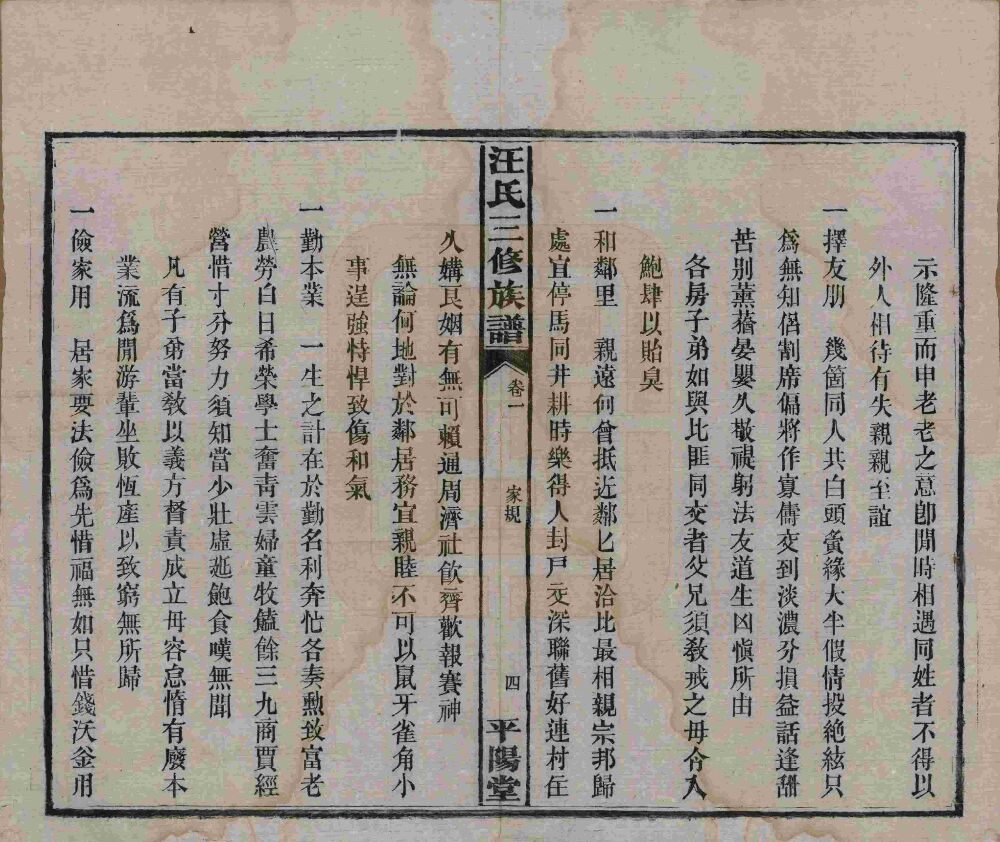 示隆重而申老老之意卽閒時相遇同姓者不得以
外人相待有失親親至誼
一擇友朋　幾箇同人共白頭夤緣大半假情投絶絃只
爲無知侶割席偏將作寡儔交到淡濃分損益話逢甜
苦别薰蕕晏嬰久敬禔躬法友道生凶愼所由
各房子弟如與比匪同交者父兄須敎戒之毋令入
鮑肆以貽臭
一和鄰里　親遠何曾抵近鄰匕居洽比最相親宗邦歸
處宜停馬同井耕時樂得人封戸交深聯舊好連村任
汪氏三修族譜
卷一
家規
四
平陽堂
久媾良姻有無可賴通周濟社飮齊歡報賽神
無論何地對於鄰居務宜親睦不可以鼠牙雀角小
事逞強恃悍致傷和氣
一勤本業　一生之計在於勤名利奔忙各奏勲致富老
農勞白日希榮學士奮靑雲婦童牧饁餘三九商賈經
營惜寸分努力須知當少壯虛延飽食嘆無聞
凡有子弟當敎以義方督責成立毋容怠惰有廢本
業流爲閒游輩坐敗恆產以致窮無所歸
一儉家用　居家要法儉爲先惜福無如只惜錢沃釜用